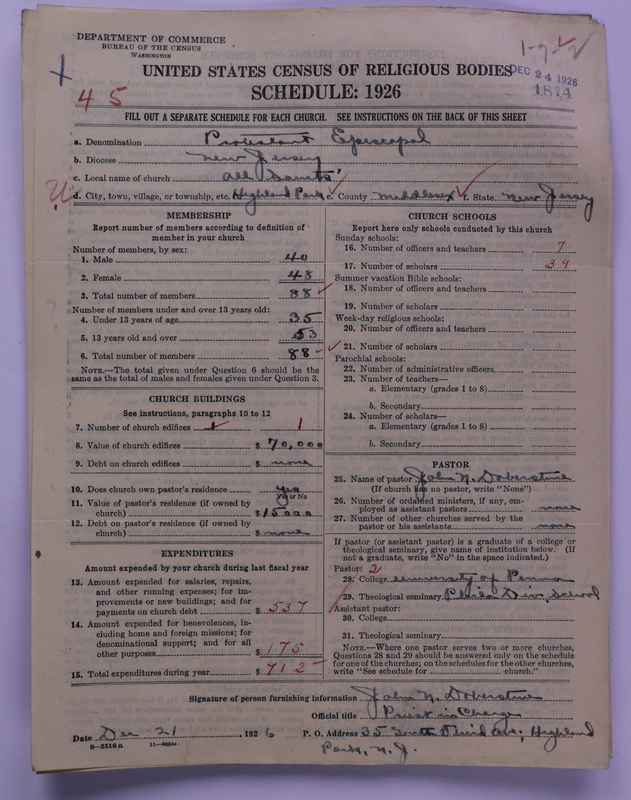 DEPARTMENT OF COMMERCE
BUREAU OF THE CENSUS
WASHINGTON
1-9-2
DEC 24 1926
1814
45
UNITED STATES CENSUS OF RELIGIOUS BODIES
SCHEDULE: 1926
FILL OUT A SEPARATE SCHEDULE FOR EACH CHURCH. SEE INSTRUCTIONS ON THE BACK OF THIS SHEET
a. Denomination Protestant Episcopal
b. Diocese New Jersey
c. Local name of church All Saints'
d. City, town, village, or township, etc. Highland Park e. County Middlesex f. State New Jersey
MEMBERSHIP
Report number of members according to definition of
member in your church
Number of members, by sex:
1. Male 40
2. Female 48
3. Total number of members 88
Number of members under and over 13 years old:
4. Under 13 years of age 35
5. 13 years old and over 53
6. Total number of members 88
NOTE.—The total given under Question 6 should be the
same as the total of males and females given under Question 3.
CHURCH BUILDINGS
See instructions, paragraphs 10 to 12
7. Number of church edifices 1
8. Value of church edifices $ 70,000
9. Debt on church edifices $ none
10. Does church own pastor's residence yes
Yes or No
11. Value of pastor's residence (if owned by
church) $15000
12. Debt on pastor's residence (if owned by
church) $ none
EXPENDITURES
Amount expended by your church during last fiscal year
13. Amount expended for salaries, repairs,
and other running expenses; for im-
provements or new buildings; and for
payments on church debt $ 537
14. Amount expended for benevolences, in-
cluding home and foreign missions; for
denominational support; and for all
other purposes $ 175
15. Total expenditures during year $ 712
CHURCH SCHOOLS
Report here only schools conducted by this church
Sunday schools:
16. Number of officers and teachers 7
17. Number of scholars 39
Summer vacation Bible schools:
18. Number of officers and teachers
19. Number of scholars
Week-day religious schools:
20. Number of officers and teachers
21. Number of scholars
Parochial schools:
22. Number of administrative officers
23. Number of teachers—
a. Elementary (grades 1 to 8)
b. Secondary
24. Number of scholars—
a. Elementary (grades 1 to 8)
b. Secondary
PASTOR
25. Name of pastor John N. Doberstine
(If church has no pastor, write "None")
26. Number of ordained ministers, if any, em-
ployed as assistant pastors none
27. Number of other churches served by the
pastor or his assistants none
If pastor (or assistant pastor) is a graduate of a college or
theological seminary, give name of institution below. (If
not a graduate, write "No" in the space indicated.)
Pastor: 2
28. College University of Penna
29. Theological seminary Phila Div. School
Assistant pastor:
30. College
31. Theological seminary
NOTE.—Where one pastor serves two or more churches,
Questions 28 and 29 should be answered only on the schedule
for one of the churches; on the schedules for the other churches,
write "See schedule for church."
Signature of person furnishing information John N. Doberstine
Official title Priest in Charge
Date Dec 21, 1926 P. O. Address 35 South Third Ave; Highland
Park, N. J.
8—5518a 11—9054